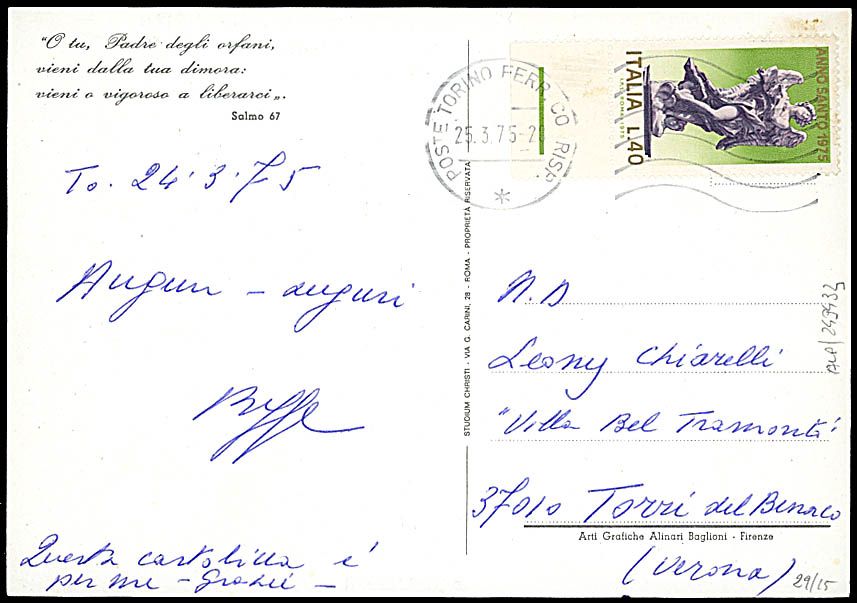 "O tu, Padre degli orfani,
vieni dalla tua dimora:
vieni o vigoroso a liberarci„.
Salmo 67
To. 24·3·75
Auguri – auguri
Questa cartolina è
per me – Grazie –
STUDIUM CHRISTI - VIA G. CARINI, 28 - ROMA - PROPRIETÀ RISERVATA
POSTE TORINO FERR CO RISP.
25.3.75-2
ITALIA L.40
ANNO SANTO 1975
N.D
Leony Chiarelli
"Villa Bel Tramonto"
37010 Torri del Benaco
Arti Grafiche Alinari Baglioni - Firenze
(Verona)
29/15